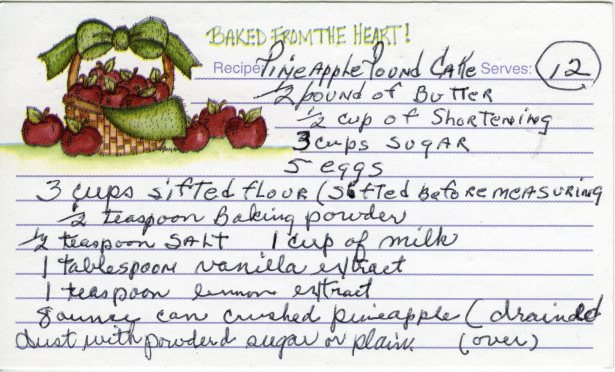 BAKED FROM THE HEART!
Recipe: PineApple Pound CAKe Serves: 12
1/2 pound of Butter
1/2 cup of Shortening
3 cups SUGAR
5 eggs
3 cups sifted flour (Sifted Before MEASURING
1/2 teaspoon Baking powder
1/2 teaspoon SALT 1 cup of milk
1 tablespoon vanilla extract
1 teaspoon lemon extract
8 ounce can crushed pineapple (drained
dust with powderd sugar or plain. (over)